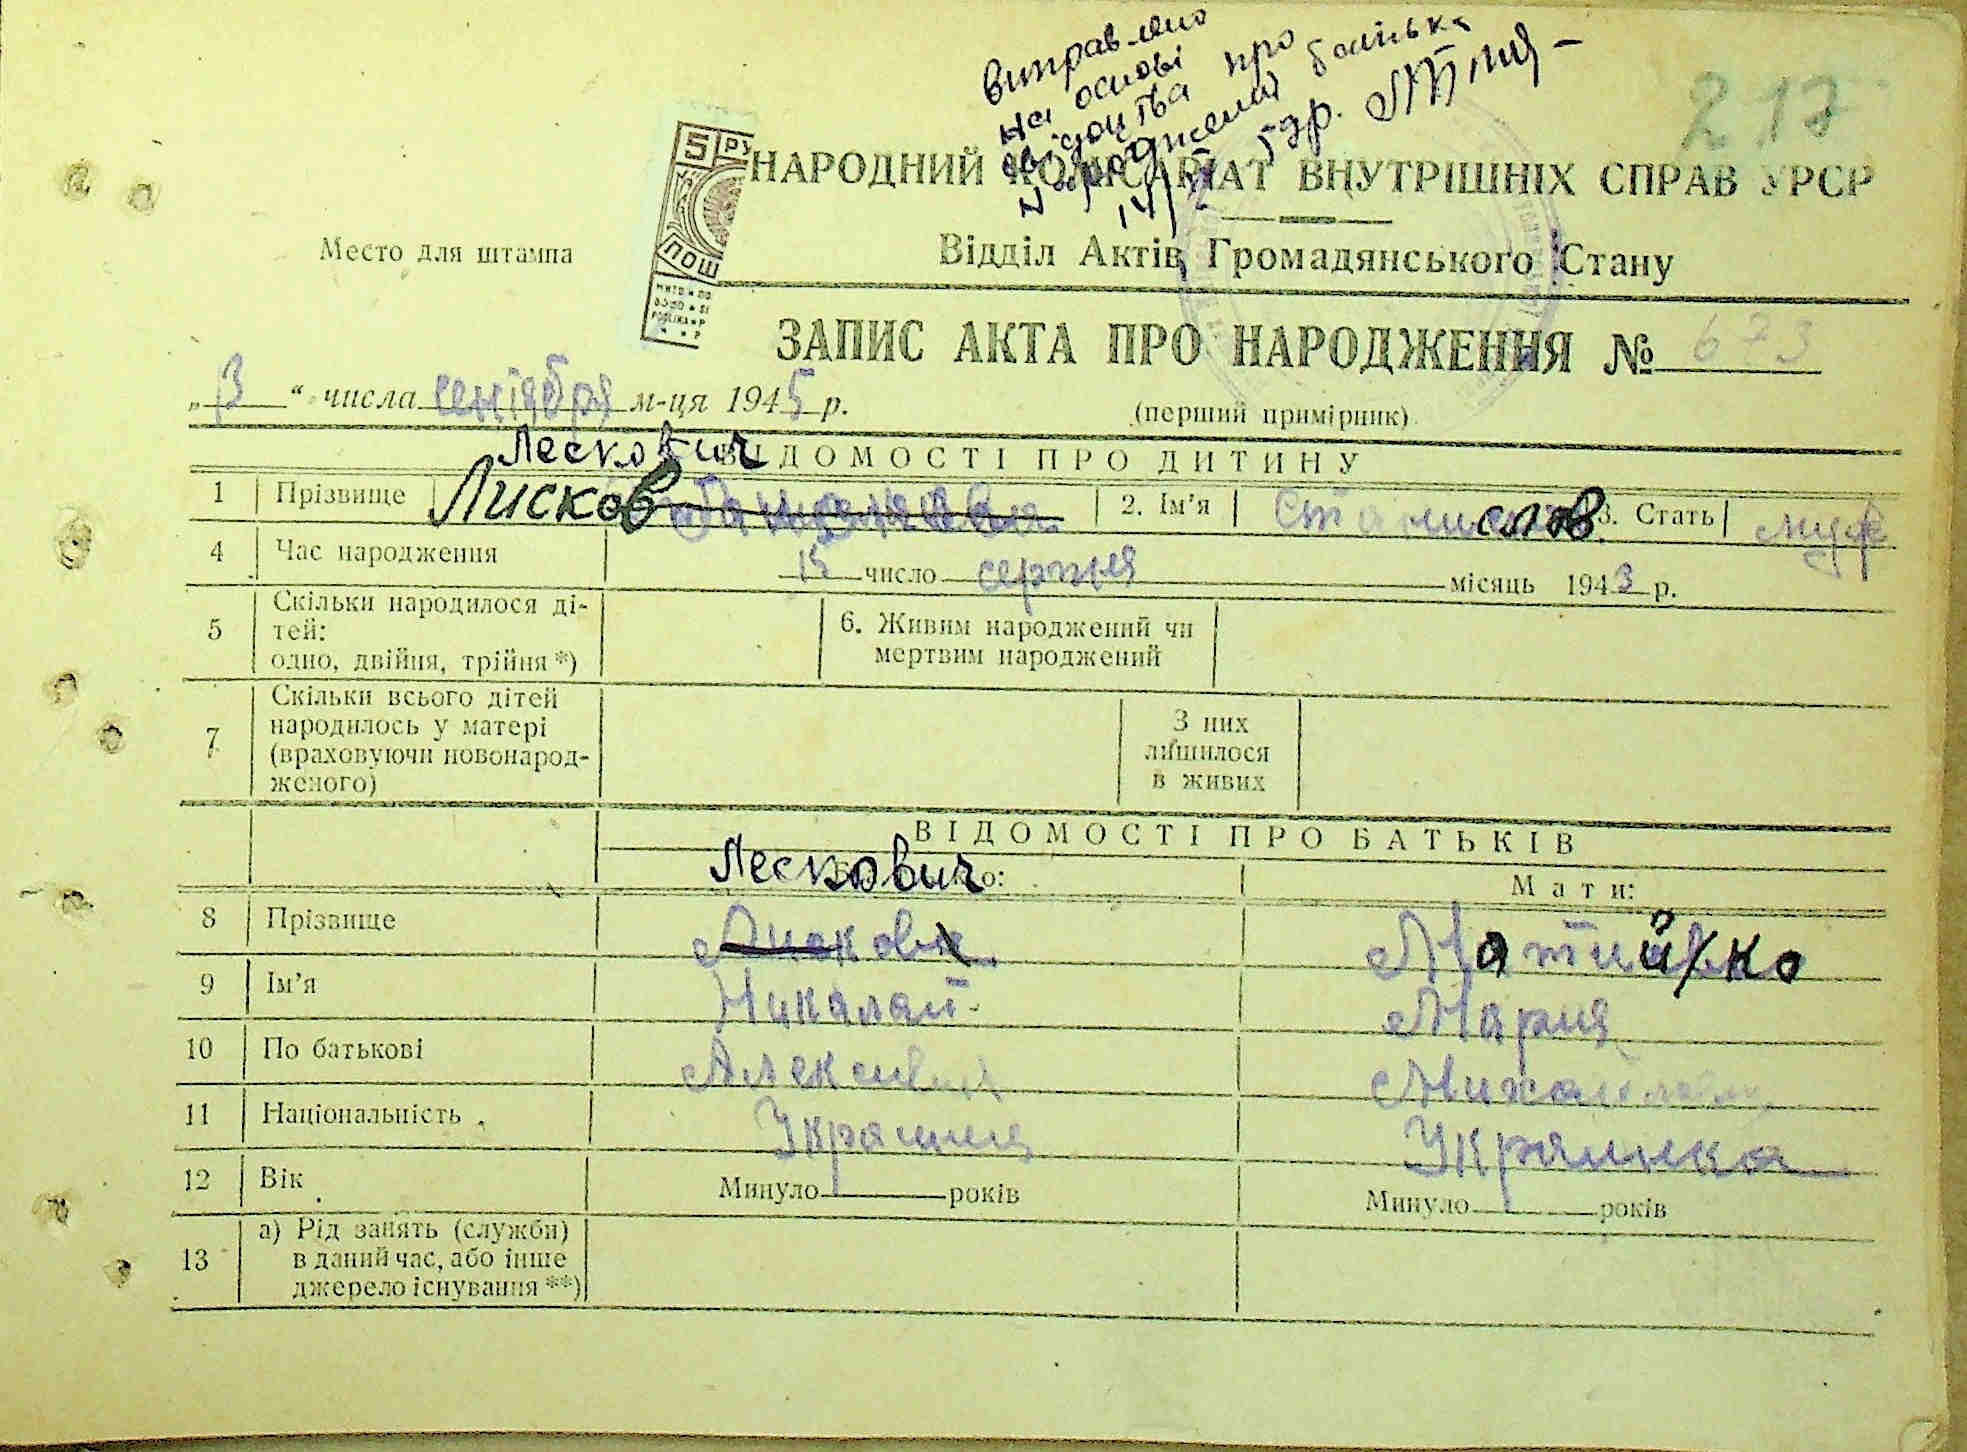 Виправлено
на основі
свідоцтва про
народження батька
217
5 РУ
ПОШ
НАРОДНИЙ КОМІСАРІАТ ВНУТРІШНІХ СПРАВ УРСР
Место для штампа
Відділ Актів Громадянського Стану
ЗАПИС АКТА ПРО НАРОДЖЕННЯ № 673
„3“ числа сентября м-ця 1945 р.
(перший примірник)
Лескович
ВІДОМОСТІ ПРО ДИТИНУ
1 Прізвище Лисков 2. Ім’я Станислав 3. Стать муж
4 Час народження 15 число серпня місяць 1943 р.
5 Скільки народилося ді-
тей:
одно, двійня, трійня *)
6. Живим народжений чи
мертвим народжений
7 Скільки всього дітей
народилось у матері
(враховуючи новонарод-
женого)
З них
лишилося
в живих
ВІДОМОСТІ ПРО БАТЬКІВ
Лескович
Мати:
8 Прізвище Лисков Матийко
9 Ім’я Николай Мария
10 По батькові Алексиевич Михайловна
11 Національність Украинец Украинка
12 Вік Минуло років Минуло років
13 а) Рід занять (служби)
в даний час, або інше
джерело існування **)